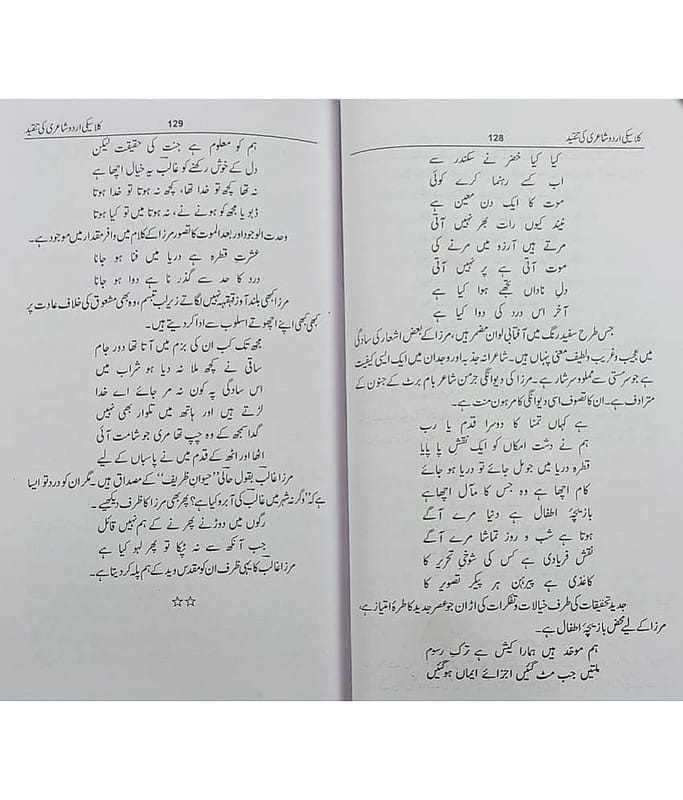 کلاسیکی اردو شاعری کی تنقید
128
کیا کیا خضر نے سکندر سے
اب کسے رہنما کرے کوئی
موت کا ایک دن معین ہے
نیند کیوں رات بھر نہیں آتی
مرتے ہیں آرزو میں مرنے کی
موت آتی ہے پر نہیں آتی
دلِ ناداں تجھے ہوا کیا ہے
آخر اس درد کی دوا کیا ہے
جس طرح سفید رنگ میں آفتابی لوان مضمر ہیں، مرزا کے بعض اشعار کی سادگی
میں عجیب و غریب و لطیف معنی پنہاں ہیں۔ شاعرانہ جذبہ اور وجدان میں ایک ایسی کیفیت
ہے جو سر مستی سے مملو و سرشار ہے۔ مرزا کی دیوانگی جرمن شاعر بام برٹ کے جنون کے
مترادف ہے۔ ان کا تصوف اسی دیوانگی کا مرہون منت ہے۔
ہے کہاں تمنا کا دوسرا قدم یا رب
ہم نے دشت امکاں کو ایک نقش پا پایا
قطرہ دریا میں جو مل جائے تو دریا ہو جائے
کام اچھا ہے وہ جس کا مآل اچھا ہے
بازیچۂ اطفال ہے دنیا مرے آگے
ہوتا ہے شب و روز تماشا مرے آگے
نقش فریادی ہے کس کی شوخیٔ تحریر کا
کاغذی ہے پیرہن ہر پیکر تصویر کا
جدید تحقیقات کی طرف خیالات و تفکرات کی اڑان جو عصر جدید کا طرۂ امتیاز ہے،
مرزا کے لیے محض بازیچۂ اطفال ہے۔
ہم موحد ہیں ہمارا کیش ہے ترک رسوم
ملتیں جب مٹ گئیں اجزائے ایماں ہو گئیں
کلاسیکی اردو شاعری کی تنقید
129
ہم کو معلوم ہے جنت کی حقیقت لیکن
دل کے خوش رکھنے کو غالب یہ خیال اچھا ہے
نہ تھا کچھ تو خدا تھا، کچھ نہ ہوتا تو خدا ہوتا
ڈبویا مجھ کو ہونے نے، نہ ہوتا میں تو کیا ہوتا
وحدت الوجود اور بعد الموت کا تصور مرزا کے کلام میں وافر مقدار میں موجود ہے۔
عشرتِ قطرہ ہے دریا میں فنا ہو جانا
درد کا حد سے گذر نا ہے دوا ہو جانا
مرزا کبھی بلند آواز قہقہہ نہیں لگاتے زیر لب تبسم، وہ بھی معشوق کی خلاف عادت پر
کبھی کبھی اپنے اچھوتے اسلوب سے ادا کر دیتے ہیں۔
مجھ تک کب ان کی بزم میں آتا تھا دور جام
ساقی نے کچھ ملا نہ دیا ہو شراب میں
اس سادگی پہ کون نہ مر جائے اے خدا
لڑتے ہیں اور ہاتھ میں تلوار بھی نہیں
گدا سمجھ کے وہ چپ تھا مری جو شامت آئی
اٹھا اور اٹھ کے قدم میں نے پاسباں کے لیے
مرزا غالب بقول حالی ”حیوانِ ظریف“ کے مصداق ہیں۔ مگر ان کو درد تو ایسا
ہے کہ ”وگرنہ شہر میں غالب کی آبرو کیا ہے؟ پھر بھی مرزا کا ظرف دیکھیے۔
رگوں میں دوڑنے پھرنے کے ہم نہیں قائل
جب آنکھ سے نہ ٹپکا تو پھر لہو کیا ہے
مرزا غالب کا یہی ظرف ان کو مقدس وید کے ہم پلہ کر دیتا ہے۔
☆☆